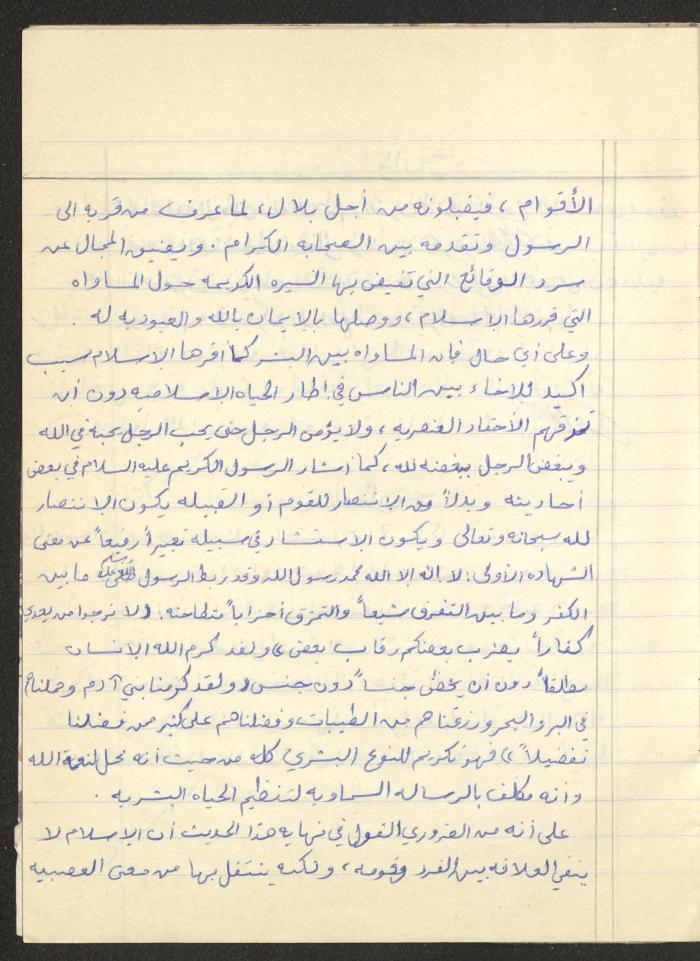 الأقوام، فيقبلونه من أجل بلال، لما عرف من قربه الى
الرسول وتقدمه بين الصحابه الكرام. ويضيق المجال عن
سرد الوقائع التي تفيض بها السيره الكريمه حول المساواه
التي قررها الاسلام، ووصلها بالايمان بالله والعبوديه له.
وعلى أي حال فإن المساواه بين البشر كما أقرها الاسلام سبب
اكيد للاخاء بين الناس في اطار الحياه الاسلاميه دون أن
تفرقهم الأحقاد العنصريه، ولا يؤمن الرجل حتى يحب الرجل يحبه في الله
ويبغض الرجل يبغضه لله، كما أشار الرسول الكريم عليه السلام في بعض
أحاديثه وبدلاً من الانتصار للقوم أو القبيله يكون الانتصار
لله سبحانه وتعالى ويكون الاستشهاد في سبيله تعبيراً رفيعاً عن معنى
الشهاده الأولى: لا اله الا الله محمد رسول الله وقد ربط الرسول صلى الله عليه وسلم ما بين
الكفر وما بين التفرق شيعاً والتمزق أحزاباً متطاحنه. (لا ترجعوا من بعدي
كفاراً يضرب بعضكم رقاب بعض) ولقد كرم الله الانسان
مطلقاً دون أن يخص جنساً دون جنس (ولقد كرمنا بني آدم وحملناهم
في البر والبحر ورزقناهم من الطيبات وفضلناهم على كثير ممن خلقنا
تفضيلاً) فهو تكريم للنوع البشري كله من حيث أنه محل لنعمة الله
وأنه مكلف بالرساله السماويه لتنظيم الحياه البشريه.
على أنه من الضروري القول في نهايه هذا الحديث أن الاسلام لا
ينفي العلاقه بين الفرد وقومه، ولكنه ينتقل بها من معنى العصبيه